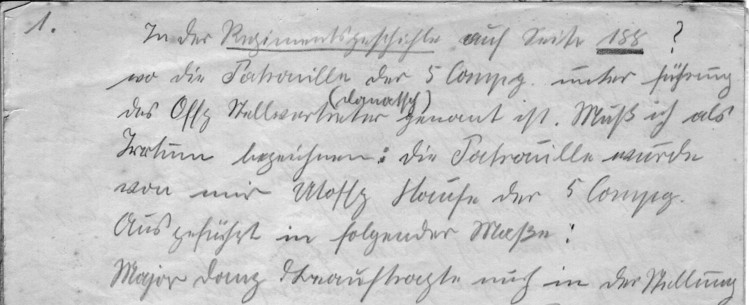 1. In der Regimentsgeschichte auf Seite 188 ?
wo die Patrouille der 5 Compg. unter führung
(danatsch)
des Offz Stellvertreter genant ist. Muß ich als
Irrtum bezeichnen: die Patrouille wurde
von mir Utoffz Haufe der 5 Compg.
Ausgeführt in folgender Maße:
Major beauftragte mich in der Stellung